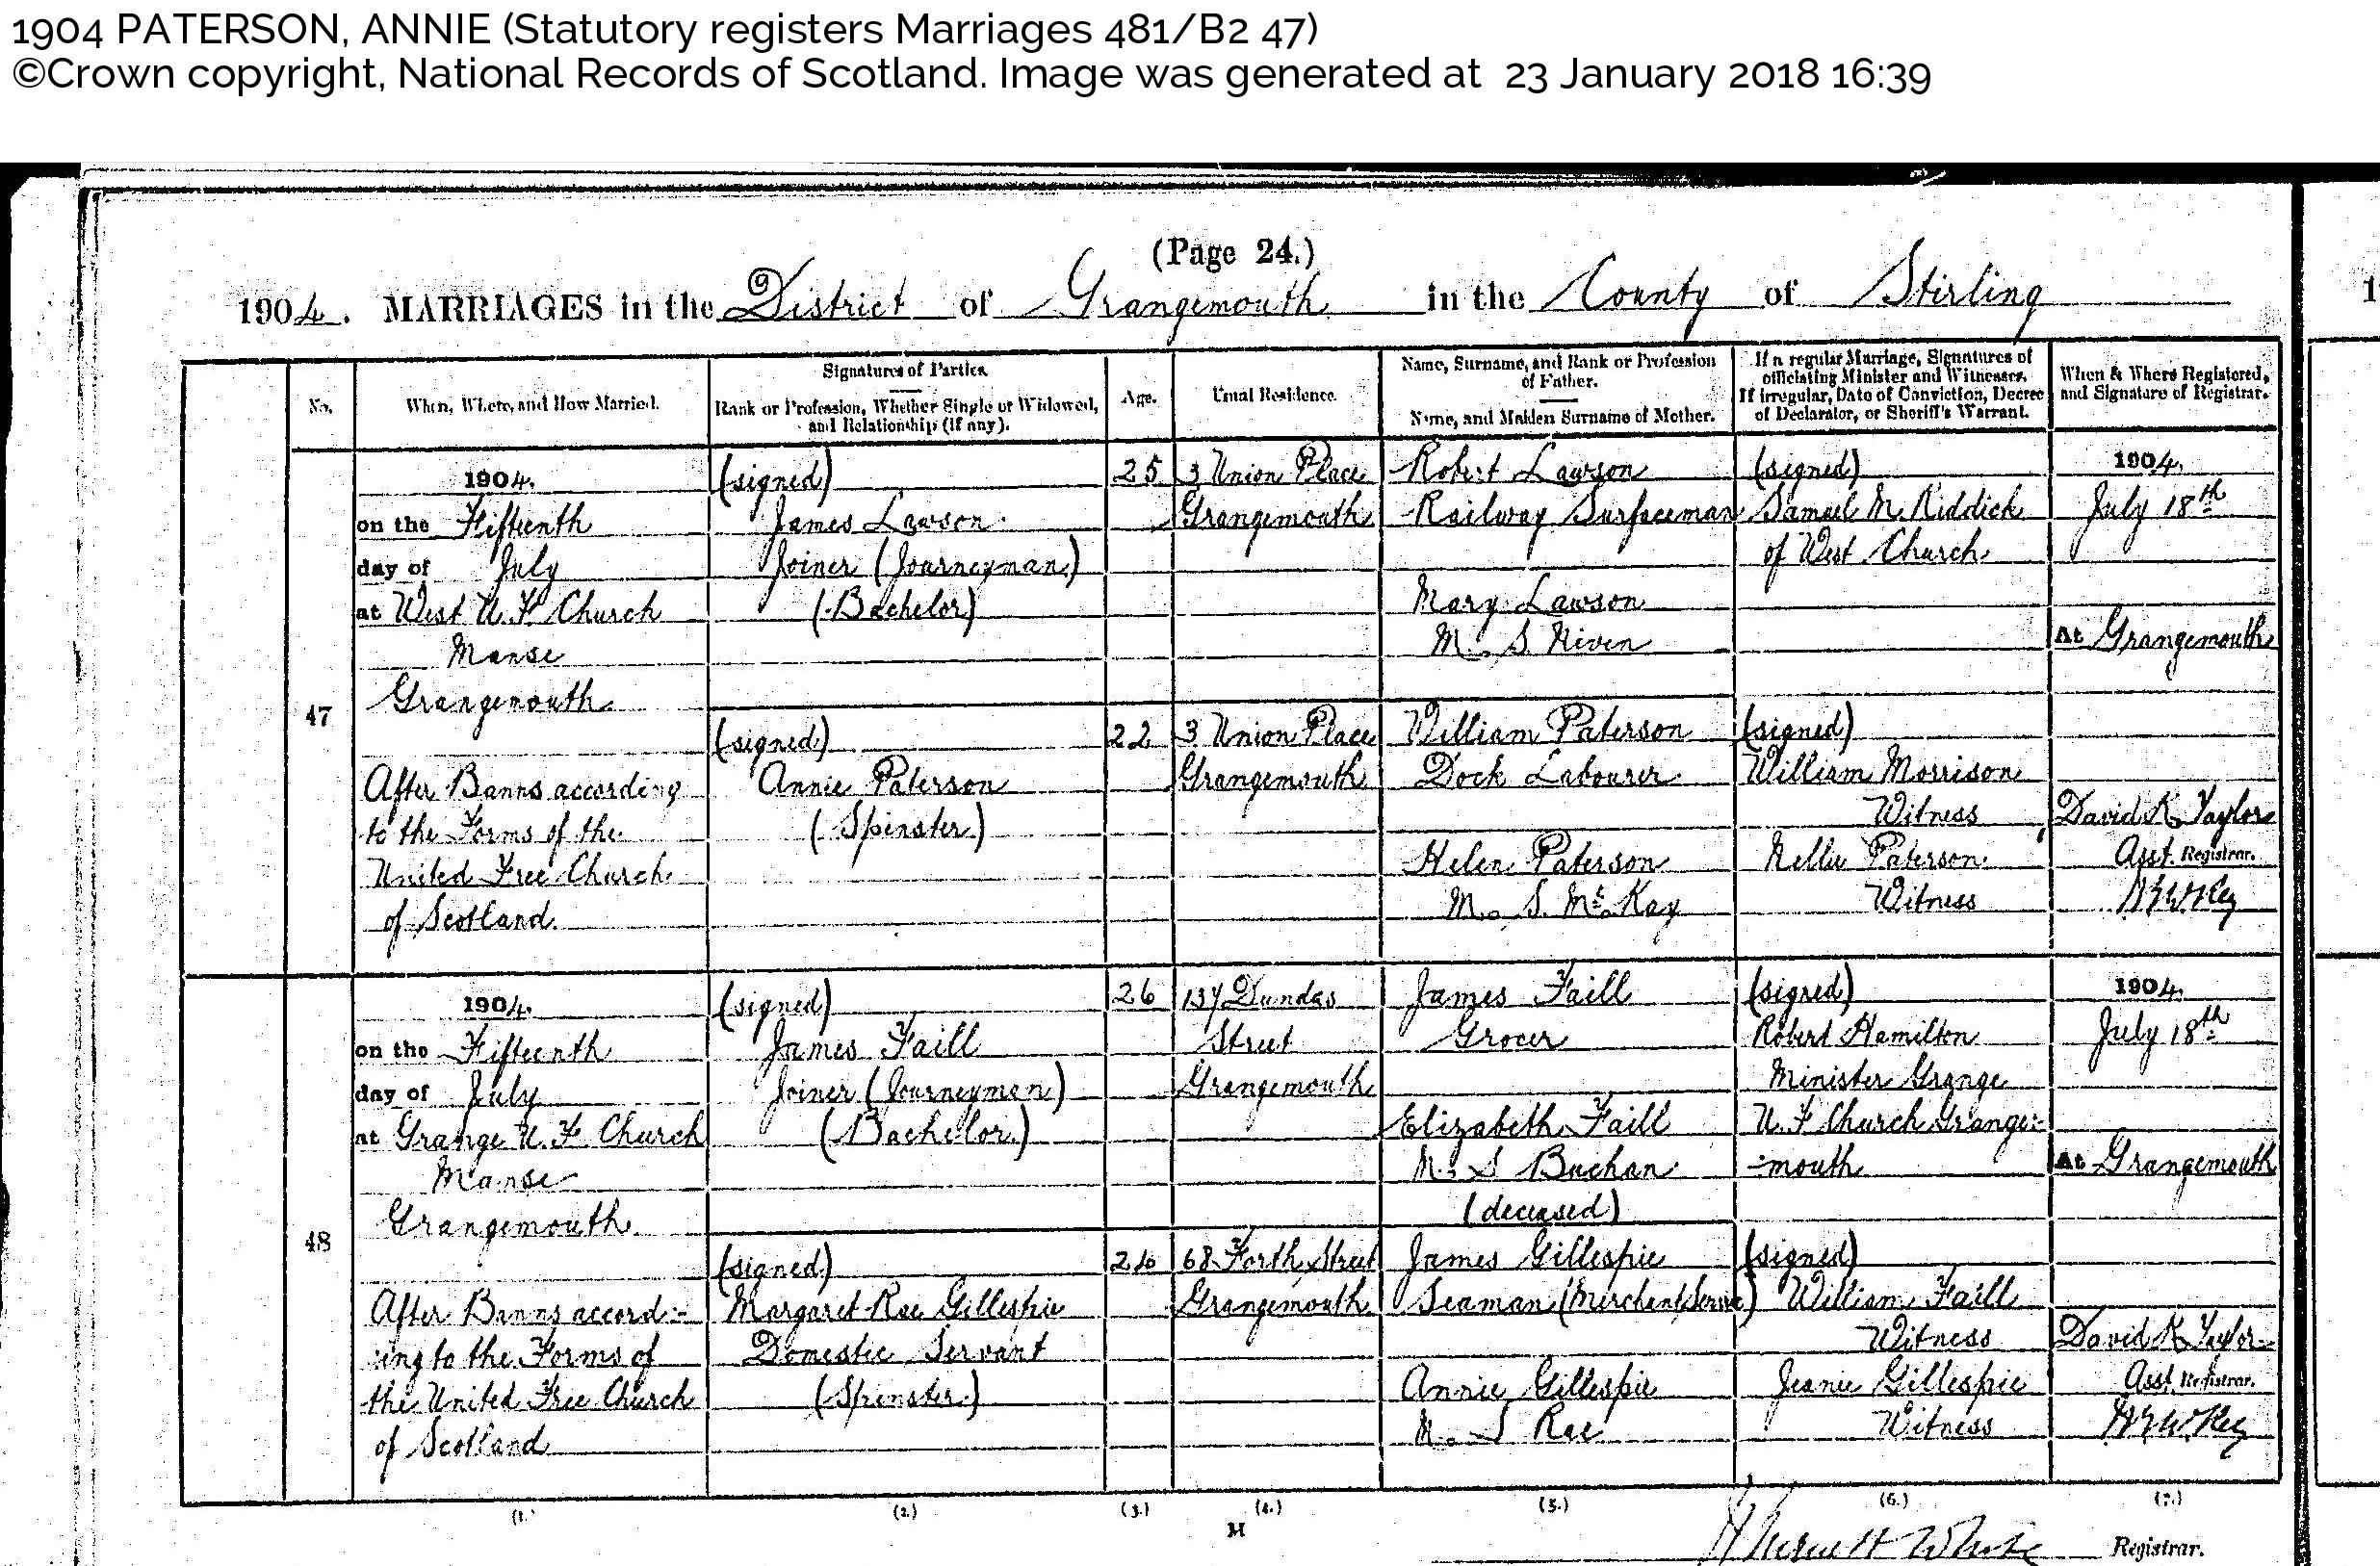 1904 PATERSON, ANNIE (Statutory registers Marriages 481/B2 47)
©Crown copyright, National Records of Scotland. Image was generated at 23 January 2018 16:39
(Page 24.)
1904. MARRIAGES in the District of Grangemouth in the County of Stirling
No.
When, Where, and How Married.
Signatures of Parties.
Rank or Profession, Whether Single or Widowed, and Relationship (if any).
Age.
Usual Residence.
Name, Surname, and Rank or Profession of Father.
Name, and Maiden Surname of Mother.
If a regular Marriage, Signatures of officiating Minister and Witnesses.
If irregular, Date of Conviction, Decree of Declarator, or Sheriff's Warrant.
When & Where Registered, and Signature of Registrar.
47
1904.
on the Fifteenth
day of July
at West U. F. Church
Manse
Grangemouth
After Banns according
to the Forms of the
United Free Church
of Scotland.
(signed)
James Lawson
Joiner (Journeyman)
(Bachelor)
(signed)
Annie Paterson
(Spinster)
25
22
3 Union Place
Grangemouth
3 Union Place
Grangemouth
Robert Lawson
Railway Surfaceman
Mary Lawson
M. S. Niven
William Paterson
Dock Labourer
Helen Paterson
M. S. McKay
(signed)
Samuel M. Riddick
of West Church
(signed)
William Morrison
Witness
Nellie Paterson
Witness
1904.
July 18th
At Grangemouth
David K Taylor
Asst. Registrar.
48
1904.
on the Fifteenth
day of July
at Grange U. F. Church
Manse
Grangemouth
After Banns accord:-
:ing to the Forms of
the United Free Church
of Scotland
(signed)
James Faill
Joiner (Journeyman)
(Bachelor)
(signed)
Margaret Rae Gillespie
Domestic Servant
(Spinster)
26
137 Dundas
Street
Grangemouth
68 Forth Street
Grangemouth
James Faill
Grocer
Elizabeth Faill
M. S Buchan
(deceased)
James Gillespie
Seaman (Merchant Service)
Annie Gillespie
M. S Rae
(signed)
Robert Hamilton
Minister Grange
U. F Church Grange:-
:-mouth
(signed)
William Faill
Witness
Jeanie Gillespie
Witness
1904.
July 18th
At Grangemouth
David K Taylor
Asst. Registrar.
(1.)
(2.)
(3.)
(4.)
(5.)
(6.)
(7.)
M
Registrar.